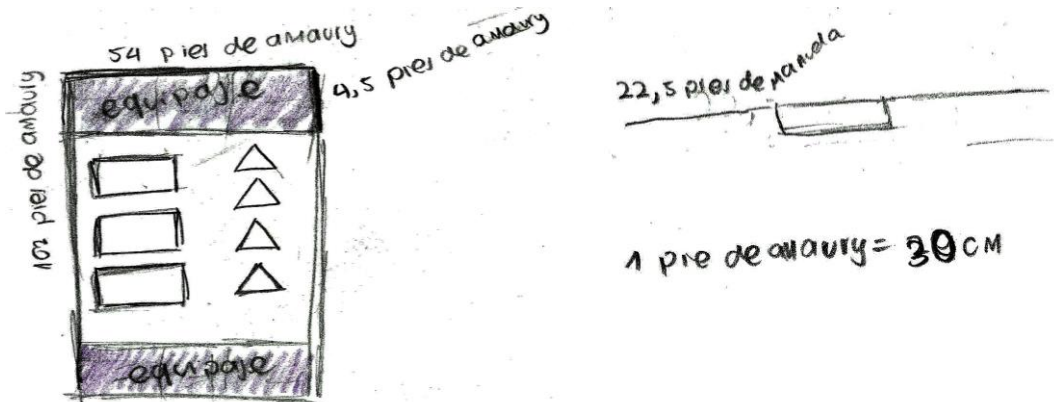 54 pies de amaury
4,5 pies de amaury
102 pies de amaury
equipaje
equipaje
22,5 pies de
1 pie de amaury = 30 cm